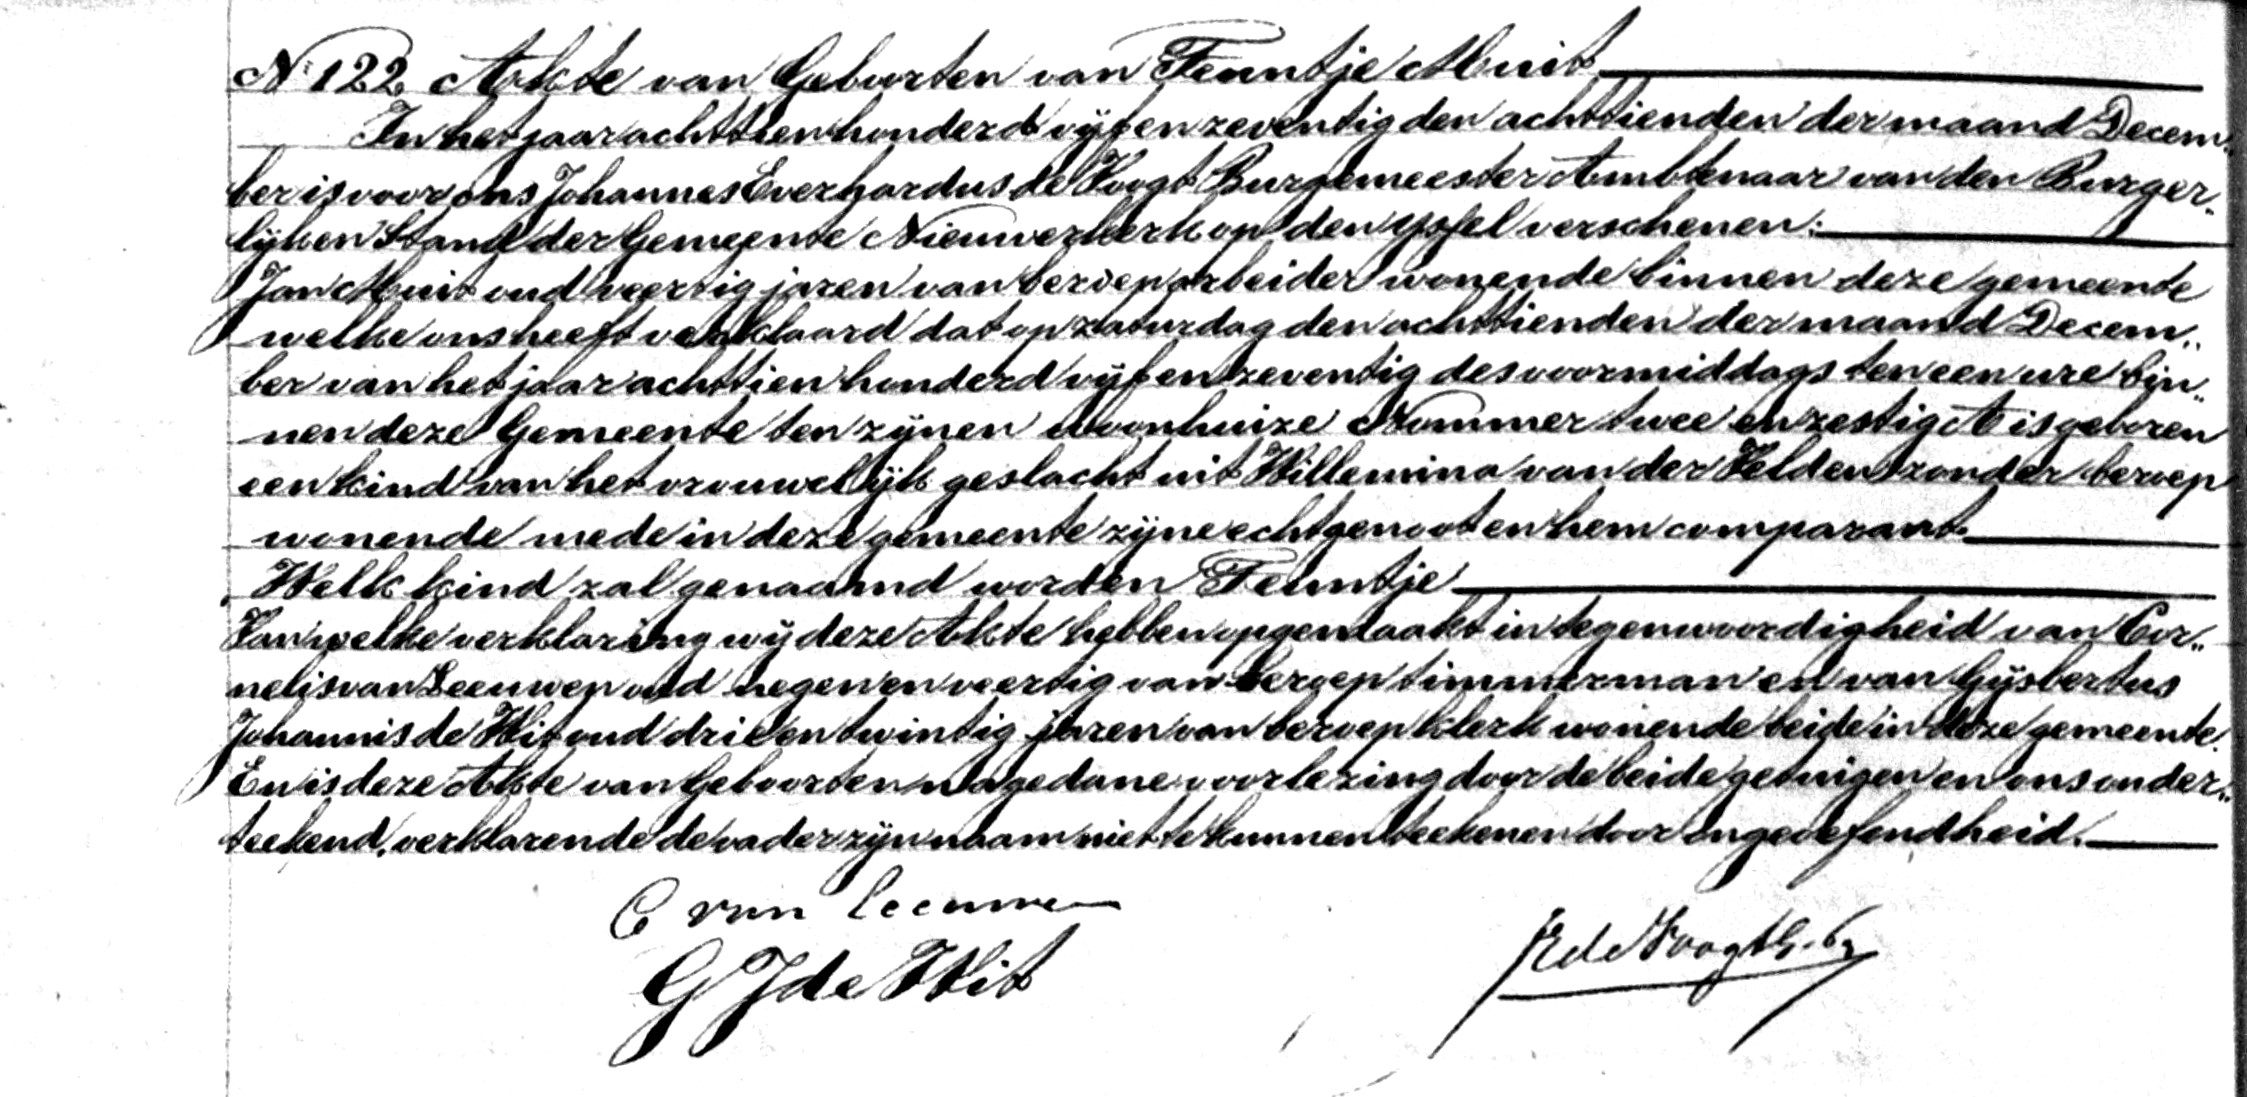 N 122 Akte van Geboorten van Teuntje Muit
In het jaar achttienhonderd vijfenzeventig den achttienden der maand Decem„
ber is voor ons Johannes Everhardus de Voogt Burgemeester Ambtenaar van den Burger„
lijken Stand der Gemeente Nieuwerkerk op den Yssel verschenen:
Jan Muit oud veertig jaren van beroep arbeider wonende binnen deze gemeente
welke ons heeft verklaard dat op zaturdag den achttienden der maand Decem„
ber van het jaar achttienhonderd vijfenzeventig des voormiddags ten een ure bin„
nen deze Gemeente ten zijnen woonhuize Nommer twee en zestig A is geboren
een kind van het vrouwelijk geslacht uit Willemina van der Velden zonder beroep
wonende mede in deze gemeente zijne echtgenoot en hem comparant.
Welk kind zal genaamd worden Teuntje
Van welke verklaring wij deze Akte hebben opgemaakt in tegenwoordigheid van Cor„
nelis van Leeuwen oud negen en veertig van beroep timmerman en van Gijsbertus
Johannis de Wit oud drie en twintig jaren van beroep klerk wonende beide in deze gemeente.
En is deze Akte van Geboorten na gedane voorlezing door de beide getuigen en ons onder„
teekend, verklarende de vader zijn naam niet te kunnen teekenen door ongeoefendheid.
C van Leeuwen
G J de Wit
JE de Voogt